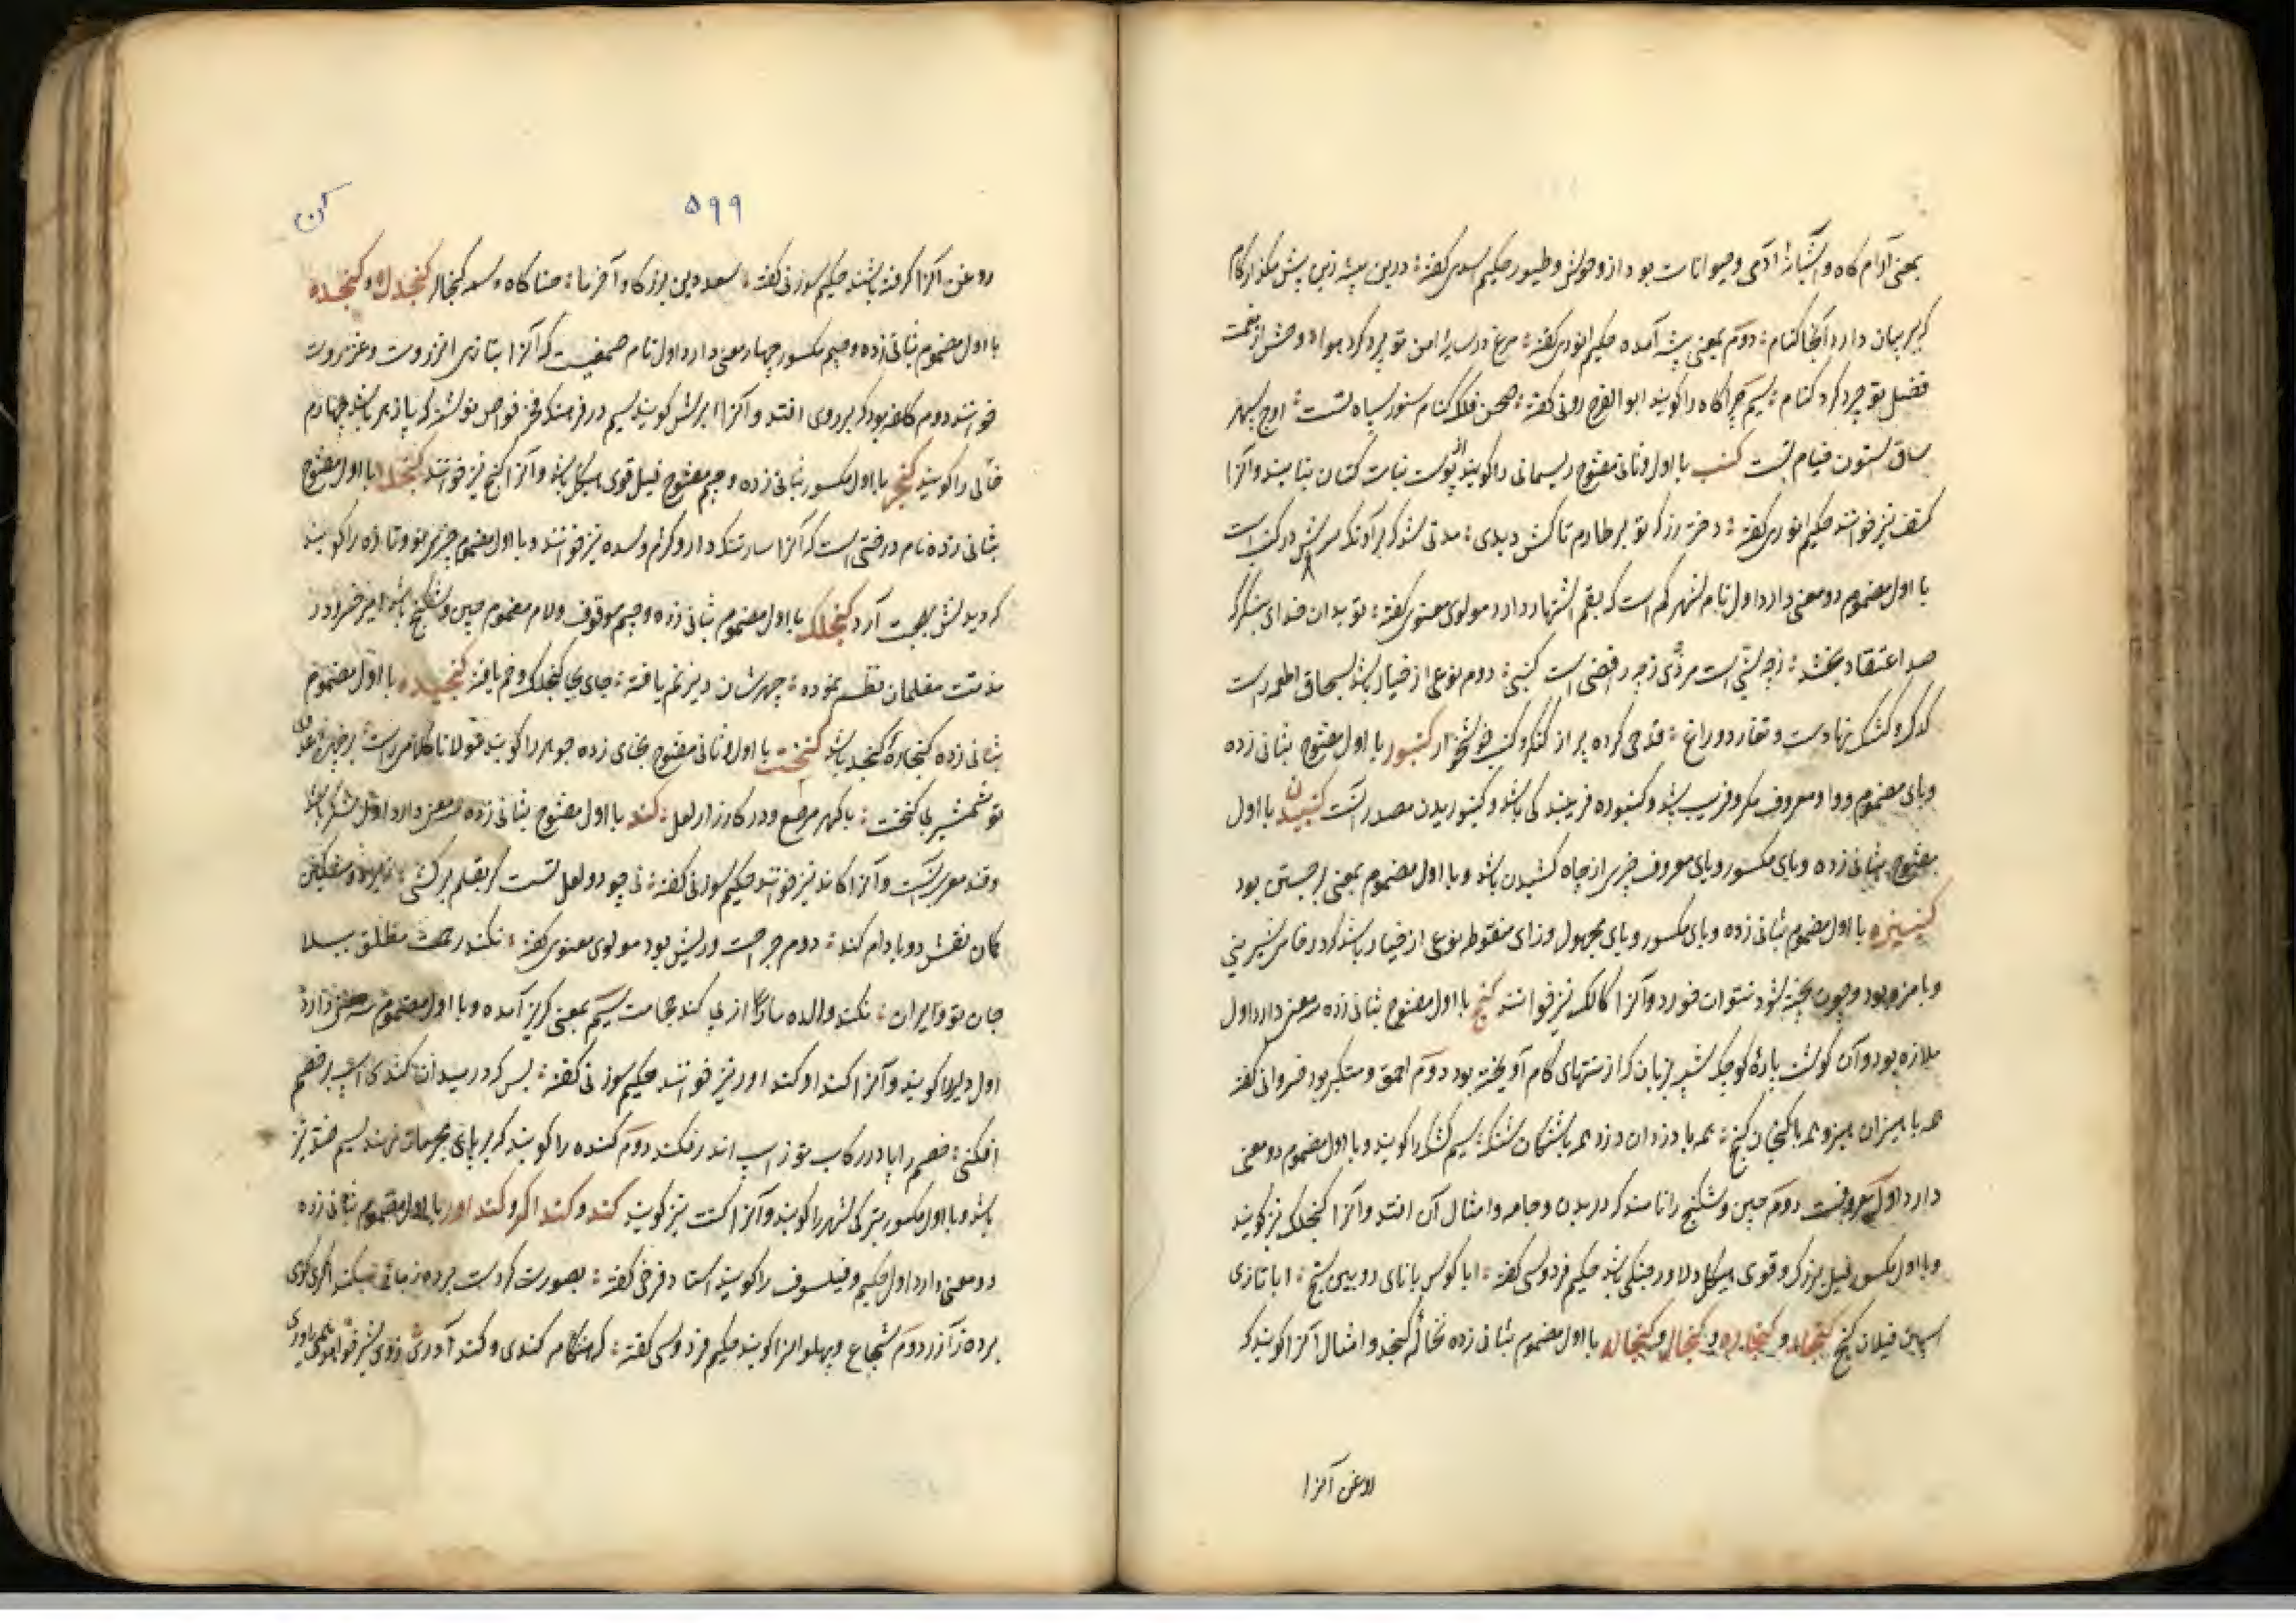 بمعنی آرام گاه و آشیانهٔ آدمی و حیوانات بود از وحوش و طیور حکیم اسدی گفته : درین بیشه زین پیش مگذار گام
که ببر بیان دارد آنجا کنام : دوم بمعنی بیشه آمده حکیم انوری گفته : مرغ در سایهٔ امن تو پرد گرد هوا : وحش از نعمت
فضل تو چرد گرد کنام : سیم چراگاه را گویند ابو الفرج رونی گفته : صحن فلک کنام ستور سپاه تست : اوج سپهر
ساق ستون خیام تست کنب با اول و ثانی مفتوح ریسمانی را گویند که از پوست نبات کتان بتابند و آنرا
کنف نیز خوانند حکیم انوری گفته : دختر رز که تو بر طارم تاکش دیدی : مدتی شد که بر آونگ سرش در کنب است
با اول مضموم دو معنی دارد اول نام شهر قم است که بقم اشتهار دارد مولوی معنوی گفته : تو بدان خدای بنگر که
صد اعتقاد بخشد : ز چه سنی است مروزی ز چه رافضی است کنبی : دوم نوعی از خیار باشد بسحاق اطعمه راست
کدک و کشک نهادست و تغار دوراغ : قدحی کرده پر از کنگر و کنب خوشخوار کنبور با اول مفتوح بثانی زده
و بای مضموم و واو معروف مکر و فریب باشد و کنبوره فریبندگی باشد و کنبوریدن مصدر آنست کنبیدن با اول
مفتوح بثانی زده و بای مکسور و یای معروف چیزی از چاه کشیدن باشد و با اول مضموم بمعنی برجستن بود
کنبیزه با اول مضموم بثانی زده و بای مکسور و یای مجهول و زای منقوطه نوعی از خیار باشد که در خامی شیرینی
و بامزه بود و چون پخته شود نتوان خورد و آنرا کالک نیز خوانند کنج با اول مفتوح بثانی زده سه معنی دارد اول
ملازه بود و آن گوشت پارهٔ کوچک شبیه بزبان که از منتهای کام آویخته بود دوم احمق و متکبر بود خسروانی گفته
همه با هیزان هیز و همه با کنجان کنج : همه با دزدان دزد و همه با شنگان شنگ : سیم کشک را گویند و با اول مضموم دو معنی
دارد اول معروفست دوم چین و شکنج را نامند که در بدن و جامه و امثال آن افتد و آنرا کنجلک نیز گویند
و با اول مکسور فیل بزرگ و قوی هیکل و دلاور جنگی باشد حکیم فردوسی گفته : ابا کوس با نای رویین سنج : ابا تازی
اسپان فیلان کنج کنجاره و کنجاده و کنجال و کنجاله با اول مضموم بثانی زده نخالهٔ کنجد و امثال آنرا گویند که
روغن آنرا
۵۹۹
کن
روغن آنرا گرفته باشند حکیم سوزنی گفته :
با اول مضموم بثانی زده و جیم مکسور چهار معنی دارد اول نام صمغیست که آنرا بتازی انزروت و عنزروت
خوانند دوم کلفه بود که بر روی افتد و آنرا ابرش گویند سیم در فرهنگ فخر قواس نوشته که پازهر باشد چهارم
خالی را گویند کنجر با اول مکسور بثانی زده و جیم مفتوح فیل قوی هیکل باشد و آنرا کنج نیز خوانند با اول مفتوح
بثانی زده نام درختی است که آنرا سارشکدار و کژم و سده نیز خوانند و با اول مضموم چیزی نو و تازه را گویند
که دیدنش بهجت آرد کنجلک با اول مضموم بثانی زده و جیم موقوف و لام مضموم چین و شکنج باشد امیر خسرو در
مذمت مغلان نظم نموده : چهرشان دبر نم یافته : جای بجای کنجلک و خم یافته کنجیده با اول مضموم
بثانی زده کنجارهٔ کنجد باشد کنخت با اول و ثانی مفتوح بخای زده جوهر را گویند
تو شمشیر بی کنخت : با گهر مرصع و در کارزار لعل : کند با اول مفتوح بثانی زده سه معنی دارد اول شکر باشد
و قند معرب آنست و آنرا کاند نیز خوانند حکیم سوزنی گفته : نی چو دو لعل تست گر بقلم برکشی
کان نقش دو بادام کند : دوم جراحت و ریش بود مولوی معنوی گفته :
سیم بمعنی گریز آمده و با اول مضموم سه معنی دارد
اول دلیر را گویند و آنرا کنداور نیز خوانند حکیم سوزنی گفته :
افکنی : خصم را پا در رکاب تو ز اسپ اندر فکند دوم کنده را گویند که بر پای مجرمان نهند سیم ضد تیز
باشد و با اول مکسور بترکی شهر را گویند و آنرا کنت نیز گویند کند و کنداگر و کنداور با اول مضموم بثانی زده
دو معنی دارد اول حکیم و فیلسوف را گویند استاد فرخی گفته :
برده ز آزر دوم شجاع و پهلوان را گویند حکیم فردوسی گفته : که هنگام کندی و کندآوری